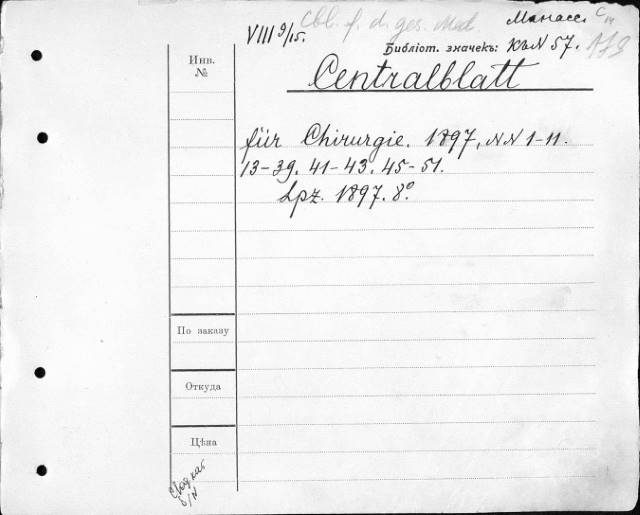 VIII 9/15. Cbl. f. d. ges. Med. Манасс.
Библіот. значекъ: къ N 57.
Инв.
№
Centralblatt
für Chirurgie. 1897, NN 1-11.
13-39. 41-43. 45-51.
Lpz. 1897. 8°
По заказу
Откуда
Цѣна
б/N